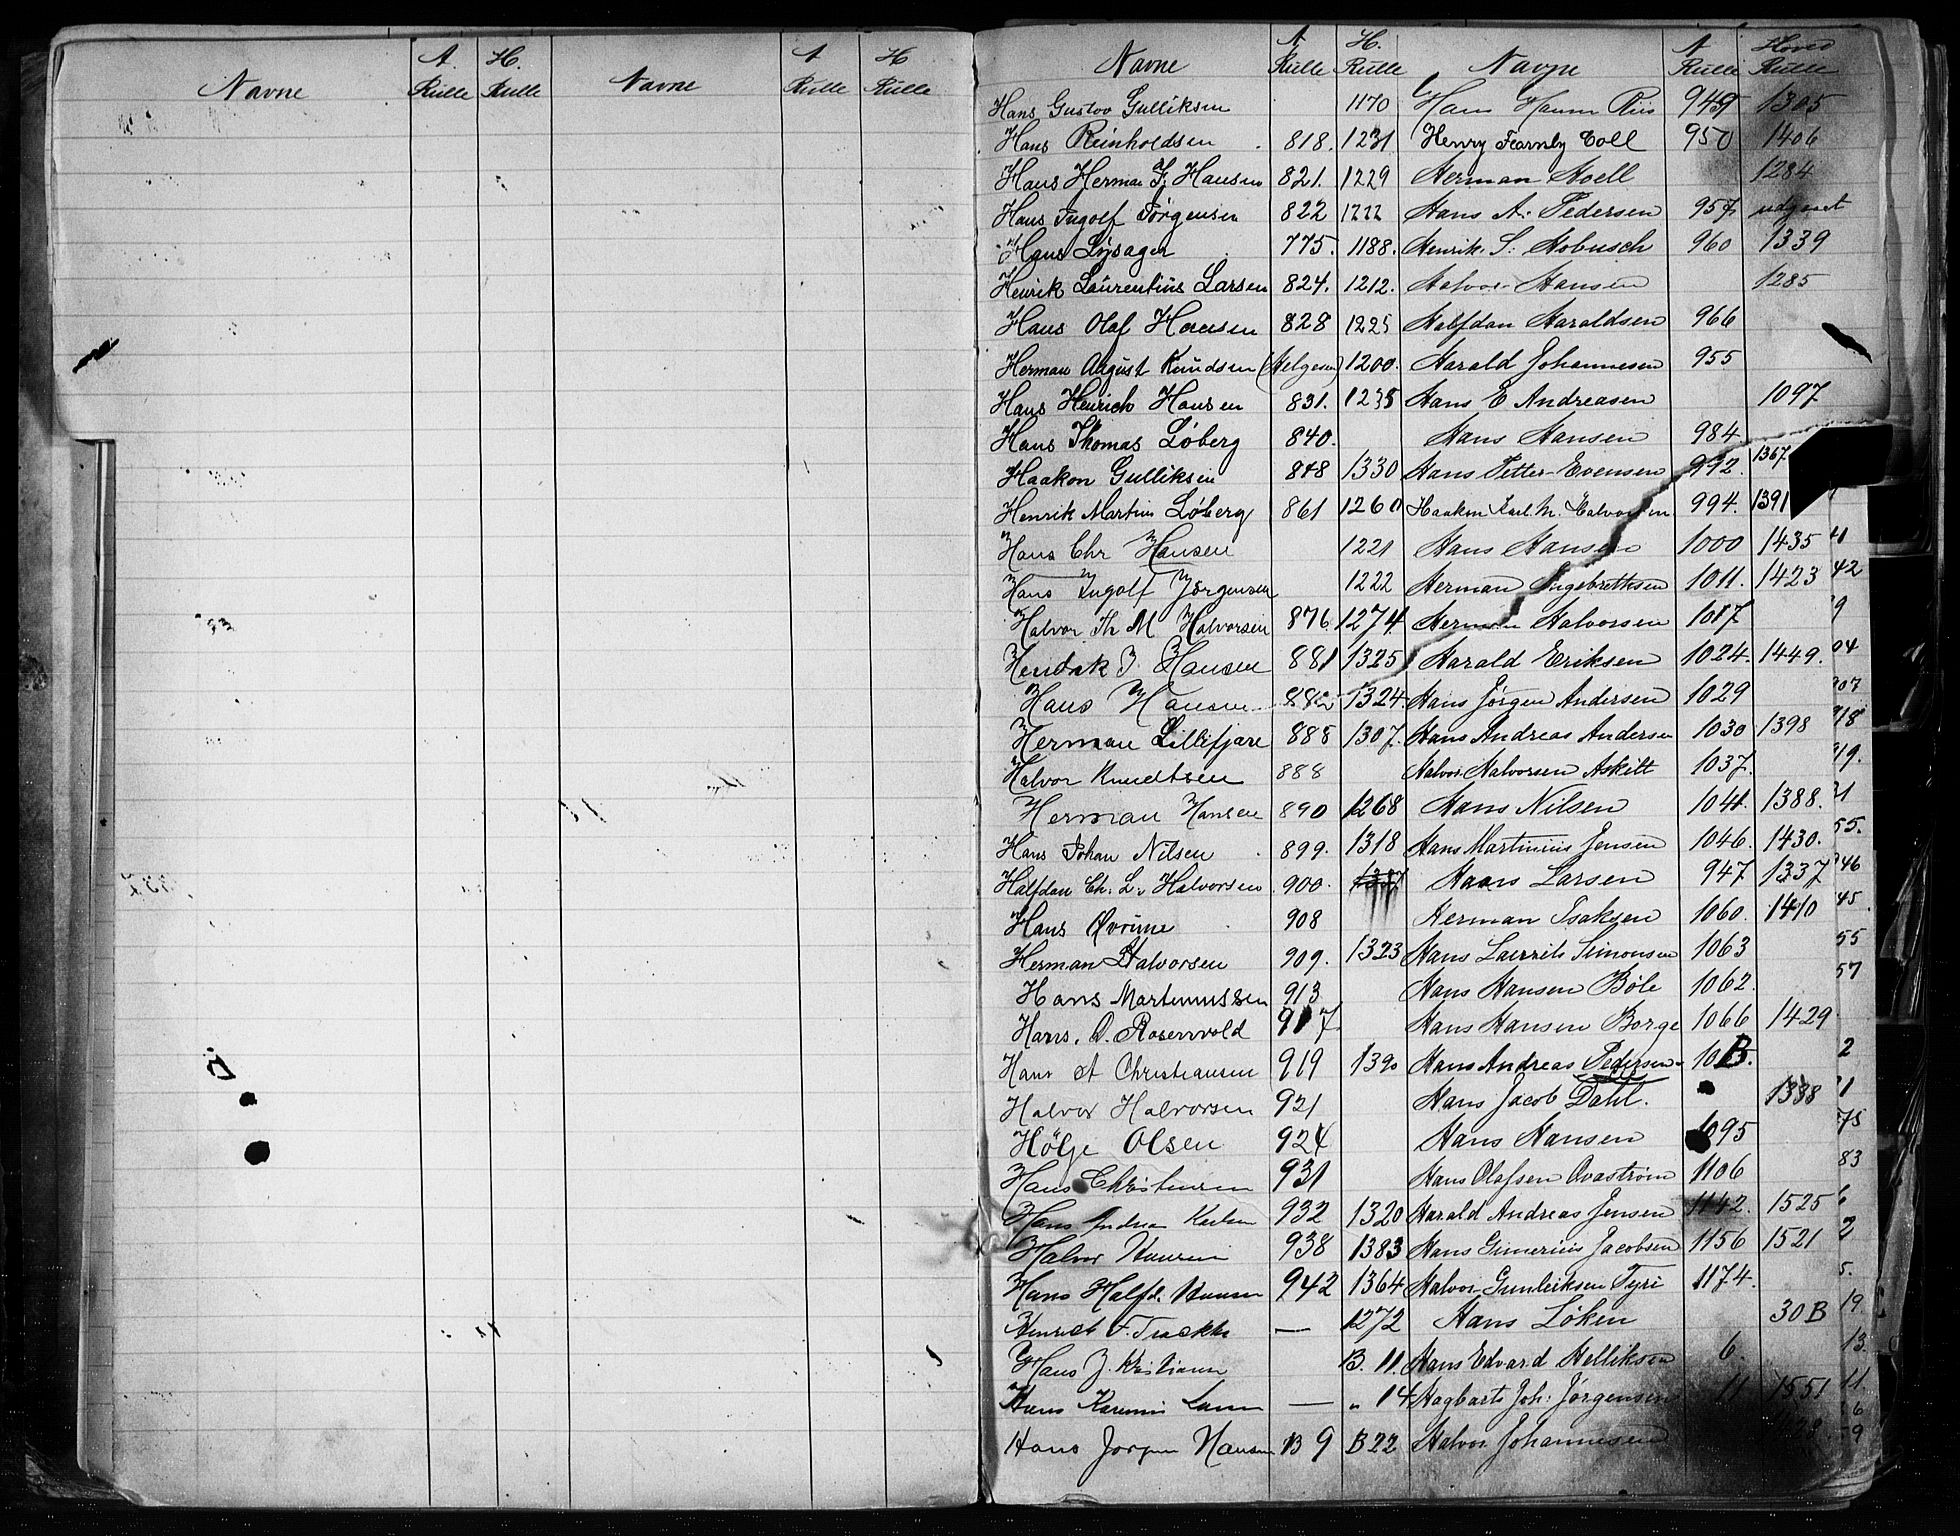 Navne A. Rulle H. Rulle Navne A Rulle H Rulle
Navne A Rulle H. Rulle Navne A Rulle Hoved Rulle
Hans Gustav Gulliksen 1170
Hans Reinholdsen 818. 1231
Hans Herman F. Hansen 821. 1229
Hans Ingolf Jørgensen 822 1222
Hans Lysager 775. 1188.
Henrik Laurentius Larsen 824. 1212.
Hans Olaf Hansen 828 1225
Herman August Knudsen (Helgesen) 1200.
Hans Heinrich Hansen 831. 1235
Hans Thomas Løberg 840.
Haakon Gulliksen 848 1330
Henrik Martin Löberg 861 1260
Hans Chr Hansen 1221
Hans Ingolf Jørgensen 1222
Halvor Th M Halvorsen 876. 1274
Hendrik J. Hansen 881 1325
Hans Hansen 882 1324.
Herman Lillifjære 885 1307.
Halvor Knudtsen 888
Herman Hansen 890 1268
Hans Johan Nilsen 899. 1318
Halfdan Ch. L. Halvorsen 900.
Hans Qvrime 908
Herman Halvorsen 909. 1323
Hans Martinussen 913
Hans. O. Rosenvold 917
Hans A Christiansen 919 1390
Halvor Halvorsen 921
Hölje Olsen 924
Hans Christensen 931
Hans Andreas 932 1320
Halvor Hansen 938 1383
Hans Halfd. Hansen 942 1364
Henrich F. — 1272
Hans J. Kristiansen B. 11.
Hans Larsen — „ 14
Hans Jørgen Hansen B 9 B 22
Hans Hanm Riis 949 1305
Henry Fearnly Coll 950 1406
Herman Hoell 1284
Hans A. Pedersen 957 udgaaet
Henrik. S. Hobusch 960 1339
Halvor Hansen 1285
Halfdan Haraldsen 966
Harald Johannesen 955
Hans E Andreasen 1097
Hans Hansen 984
Hans Petter Evensen 992. 1367
Haakon Karl. M. Halvorsen 994. 1391
Hans Hansen 1000 1435
Herman Ingebretksen 1011. 1423
Herman Halvorsen 1017
Harald Eriksen 1024. 1449.
Hans Jørgen Andersen 1029
Hans Andreas Andersen 1030 1398
Halvor Halvorsen Askilt 1037.
Hans Nilsen 1041. 1388.
Hans Martinius Jensen 1046. 1430.
Hans Larsen 947 1337
Herman Isaksen 1060. 1410
Hans Lauritz Simonsen 1063
Hans Hansen Böle 1062.
Hans Hansen Borge 1066 1429
Hans Andreas Pedersen
Hans Jacob Dahl. 1338
Hans Hansen 1095
Hans Olafsen Qvastrøm 1106
Harald Andreas Jensen 1142. 1525
Hans Gunerius Jacobsen 1156 1521
Halvor Gunleiksen Tyri 1174.
Hans Løken 30 B
Hans Edvard Helliksen 6.
Hagbart Joh. Jørgensen 11 1551
Halvor Johannesen